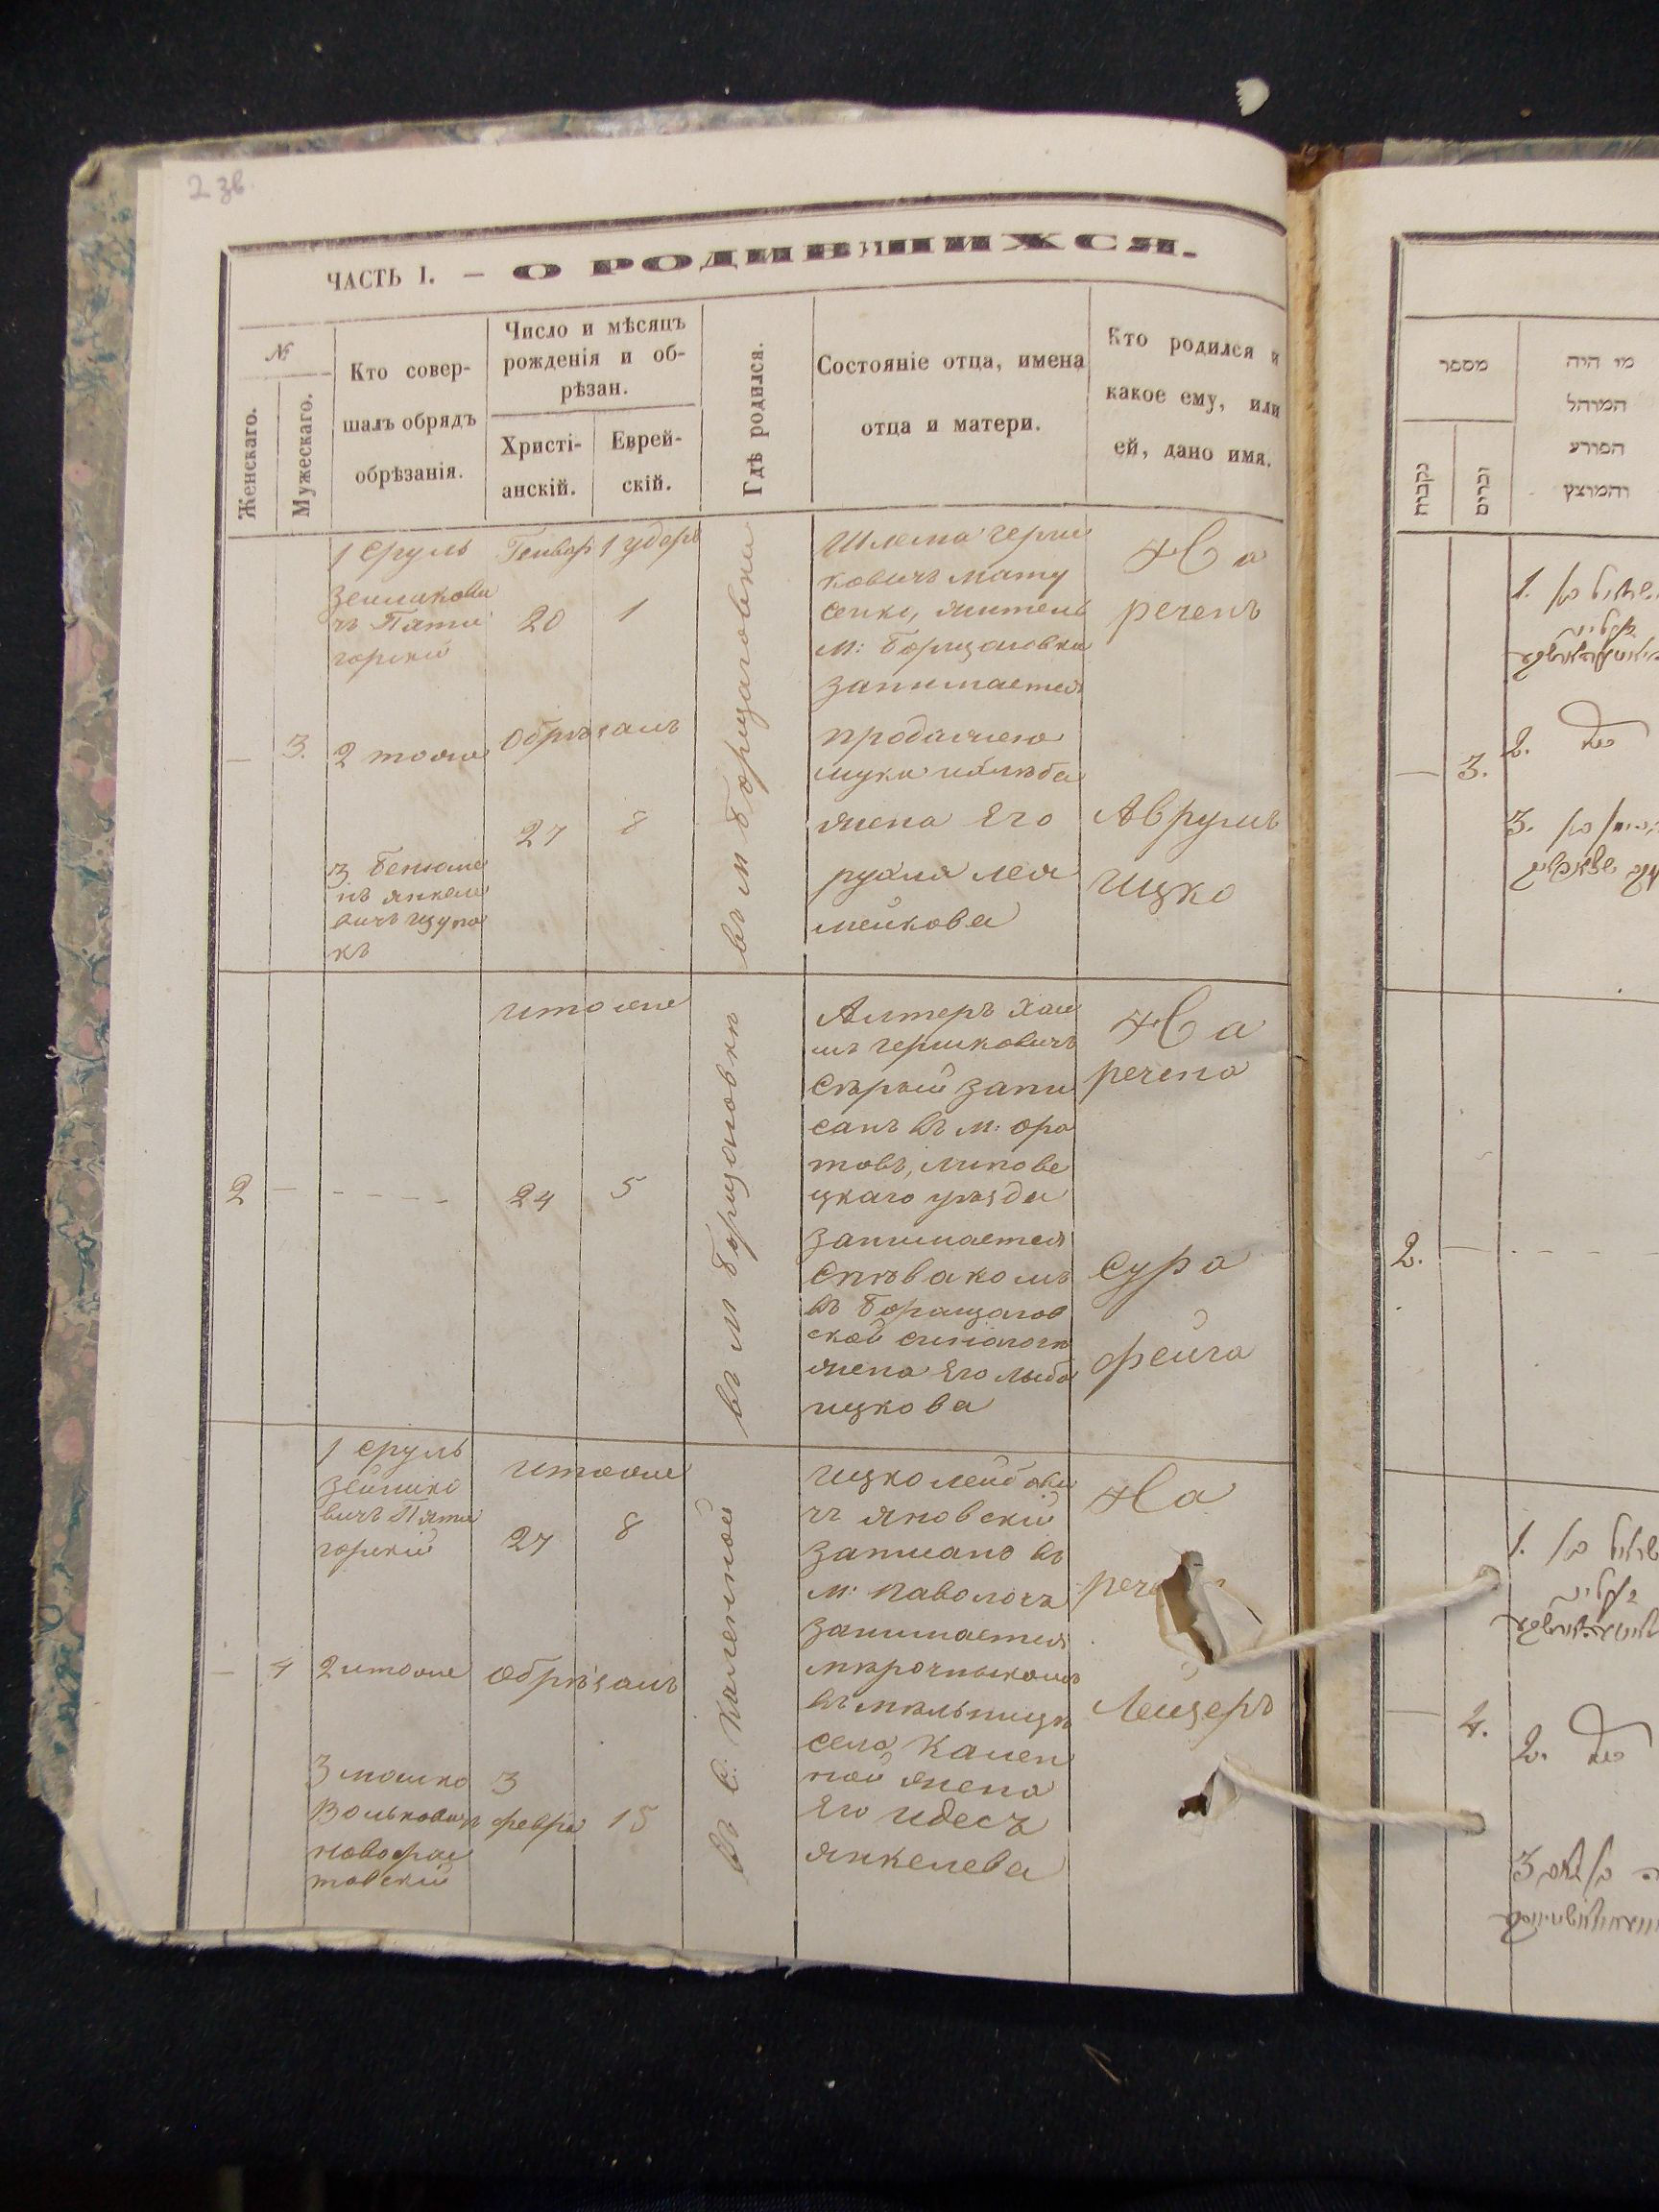 2 зв.
ЧАСТЬ I. — О РОДИВШИХСЯ.
№
Женскаго.
Мужескаго.
Кто совер-
шалъ обрядъ
обрѣзанія.
Число и мѣсяцъ
рожденія и об-
рѣзан.
Христі-
анскій.
Еврей-
скій.
Гдѣ родился.
Состояніе отца, имена
отца и матери.
Кто родился и
какое ему, или
ей, дано имя.
—
3.
1 Сруль
Зейликови
чъ Пяти
горский
2 тоже
3 Бенюме
нъ Янкеле
вичъ Цупа
къ
Генвар 1 Удоръ
20 1
Обрѣзанъ
27 8
въ м Борщаговки
Шлема Герш
ковичъ Мату
сенко, житель
м: Борщаговки
занимается
продажею
муки и хлѣба
жена Его
рухла лея
мейкова
На
реченъ
Аврумъ
Ицко
2
—
- - - - -
итоже
24 5
въ м Борщаговкѣ
Алтеръ Хаи
мъ Гершковичъ
Сѣрый запи
санъ въ м: Ора
товъ, липове
цкаго уѣзда
занимается
спѣвакомъ
въ Борщагов
ской синагогѣ
жена Его лыба
ицкова
На
речена
Сура
фейга
—
4
1 Сруль
Зейлико
вичъ Пяти
горскій
2 итоже
3 мошко
Вольковичъ
новофас
товскій
итоже
27 8
Обрѣзанъ
3
февра 15
въ с: Каменной
Ицко лейбови
чъ Яновскій
записано въ
м: Паволочъ
занимается
мѣрочныкомъ
въ мѣльницѣ
села Камен
ной жена
Его Идесъ
янкелева
На
рече
Лейзеръ
מספר
נקבות
זכרים
מי היה
המוהל
הפורע
והמוצץ
—
3.
1.
2.
3.
2.
—
- - - -
—
4.
1.
2.
3